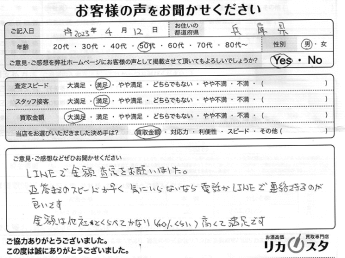 お客様の声をお聞かせください
ご記入日 2023年 4月 12日 お住いの都道府県 兵庫県
年齢 20代・30代・40代・50代・60代・70代・80代〜 性別 男・女
ご意見・ご感想を弊社ホームページにお客様の声として掲載させて頂いてもよろしいでしょうか? Yes・No
査定スピード 大満足・満足・やや満足・どちらでもない・やや不満・不満・( )
スタッフ接客 大満足・満足・やや満足・どちらでもない・やや不満・不満・( )
買取金額 大満足・満足・やや満足・どちらでもない・やや不満・不満・( )
当店をお選びいただきました決め手は? 買取金額・対応力・利便性・スピード・その他( )
ご意見・ご感想などぜひお聞かせください
LINEで金額査定をお願いしました。
返答までのスピードが早く 気にいらないなら電話かLINEで連絡できるのが
良いです
金額は他社とくらべてかなり(40%くらい)高くて満足です
ご協力ありがとうございました。
この度は誠にありがとうございました。
出張高価 買取専門店
リカスタ